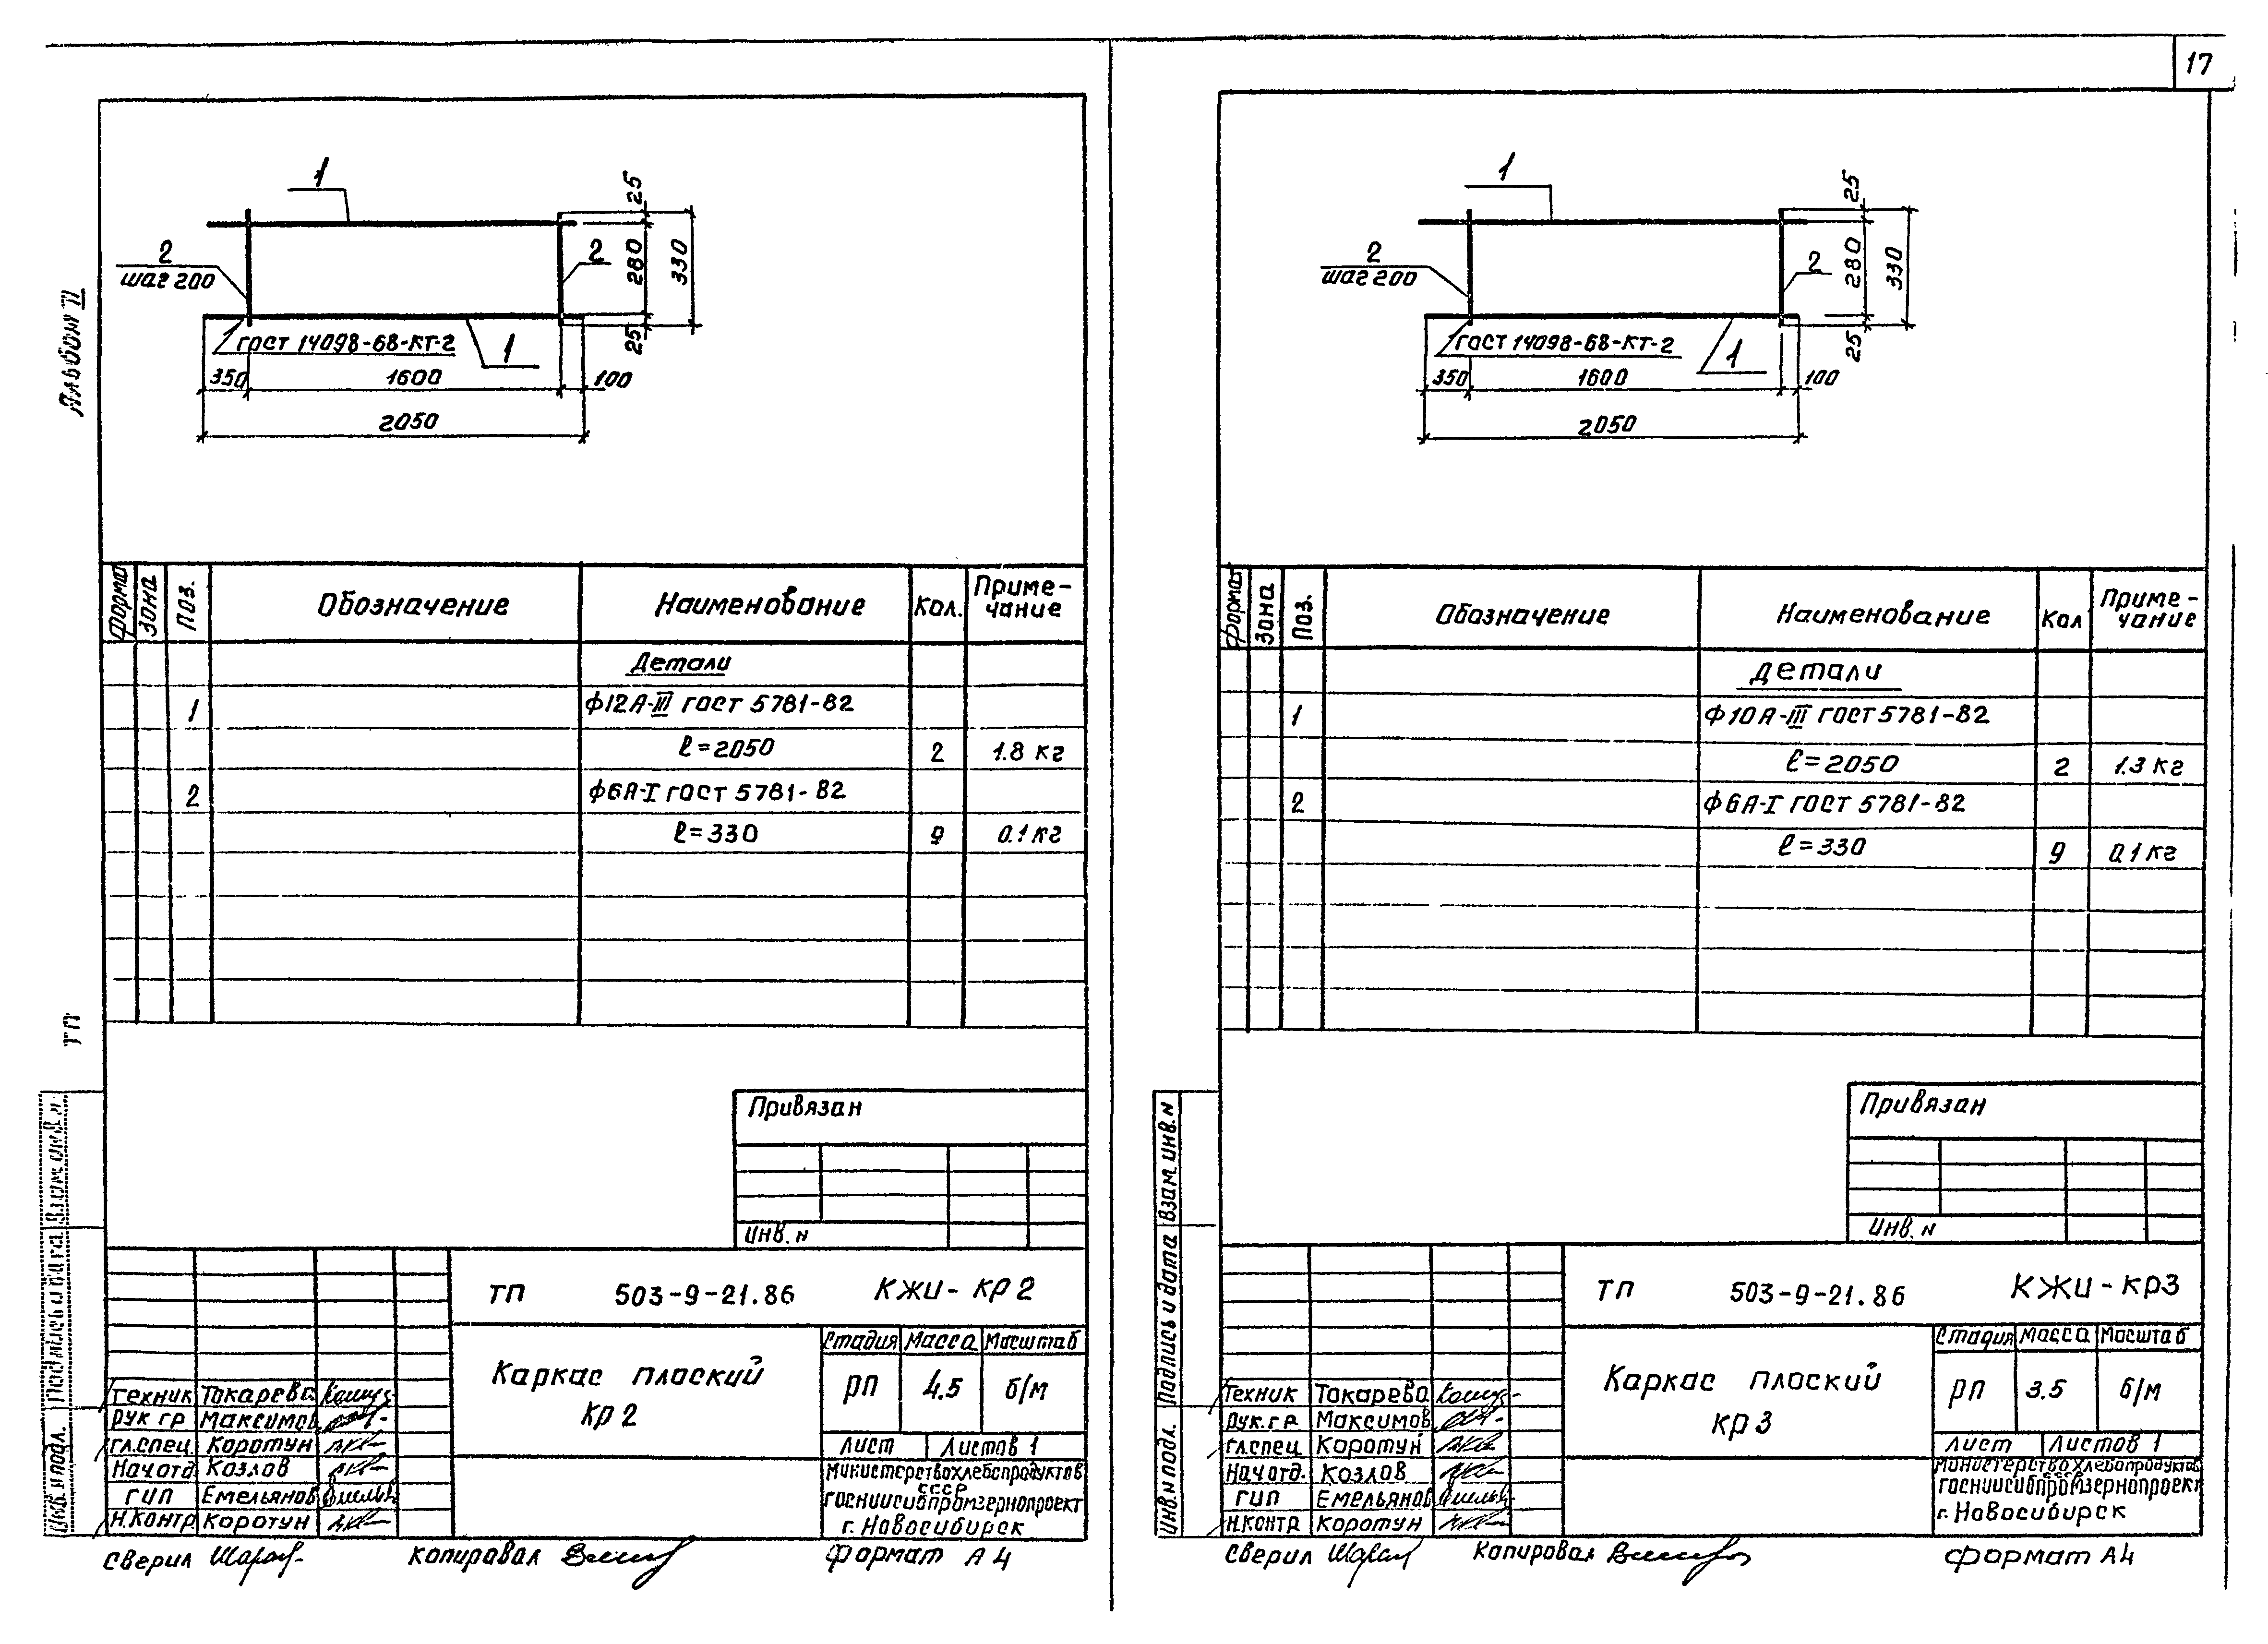 17
Альбом II
1
2
шаг 200
2
25
280
330
25
ГОСТ 14098-68-КТ-2
1
350
1600
100
2050
Формат Зона Поз. Обозначение Наименование Кол. Приме-
чание
Детали
1 Ф12А-III ГОСТ 5781-82
ℓ=2050 2 1.8 кг
2 Ф6А-I ГОСТ 5781-82
ℓ=330 9 0.1 кг
ТП
Привязан
Инв. N
ТП 503-9-21.86 КЖИ-КР2
Каркас плоский
КР2
Стадия Масса Масштаб
РП 4.5 б/м
Лист Листов 1
Министерство хлебопродуктов
СССР
ГОСНИИСИБПРОМЗЕРНОПРОЕКТ
г. Новосибирск
Техник Токарева
Рук гр Максимов
Гл.спец. Коротун
Нач отд. Козлов
ГИП Емельянов
Н.контр Коротун
Инв. N подл. Подпись и дата Взам. инв. N
Сверил Копировал Формат А4
1
2
шаг 200
2
25
280
330
25
ГОСТ 14098-68-КТ-2
1
350
1600
100
2050
Формат Зона Поз. Обозначение Наименование Кол Приме-
чание
Детали
1 Ф10А-III ГОСТ 5781-82
ℓ=2050 2 1.3 кг
2 Ф6А-I ГОСТ 5781-82
ℓ=330 9 0.1 кг
Привязан
Инв. N
ТП 503-9-21.86 КЖИ-КР3
Каркас плоский
КР3
Стадия Масса Масштаб
РП 3.5 б/м
Лист Листов 1
Министерство хлебопродуктов
СССР
ГОСНИИСИБПРОМЗЕРНОПРОЕКТ
г. Новосибирск
Техник Токарева
Рук.гр. Максимов
Гл.спец Коротун
Нач отд. Козлов
ГИП Емельянов
Н.контр Коротун
Инв. N подл. Подпись и дата Взам. инв. N
Сверил Копировал Формат А4